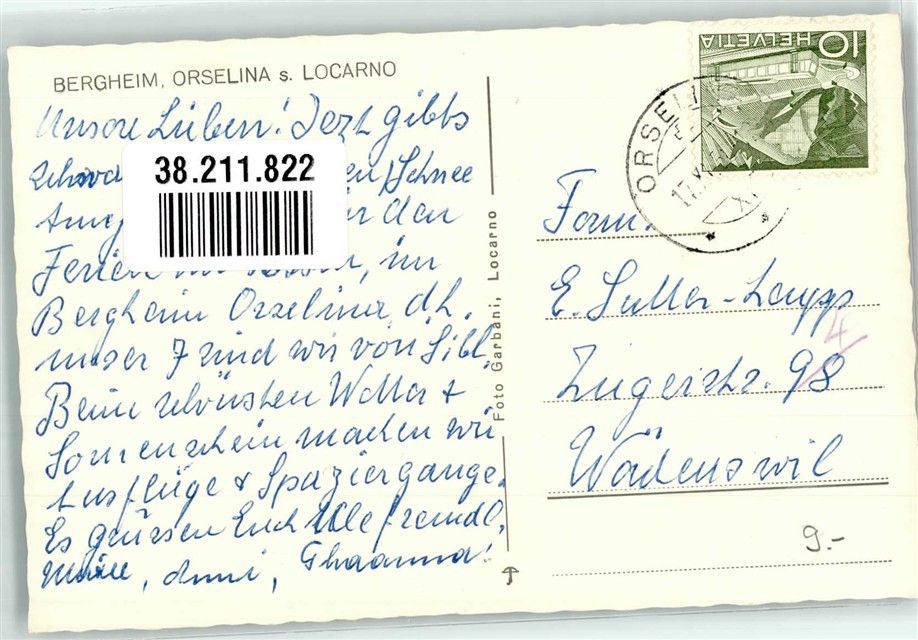 BERGHEIM, ORSELINA s. LOCARNO
Unsere Lieben! Jezt gibbs
38.211.822
en Schnee
den
Ferien im
Bergheim Orselina d.h.
unser 7 sind wir von
Beim schönsten Wetter +
Sonnenschein machen wir
Ausflüge & Spaziergänge.
Es grüssen Euch Alle freundl.
Anni,
Foto Garbani, Locarno
10
HELVETIA
ORSELINA
17.X
Fam.
E. Sutter-Laupp
Zugerstr. 98
4
Wädenswil
9.-